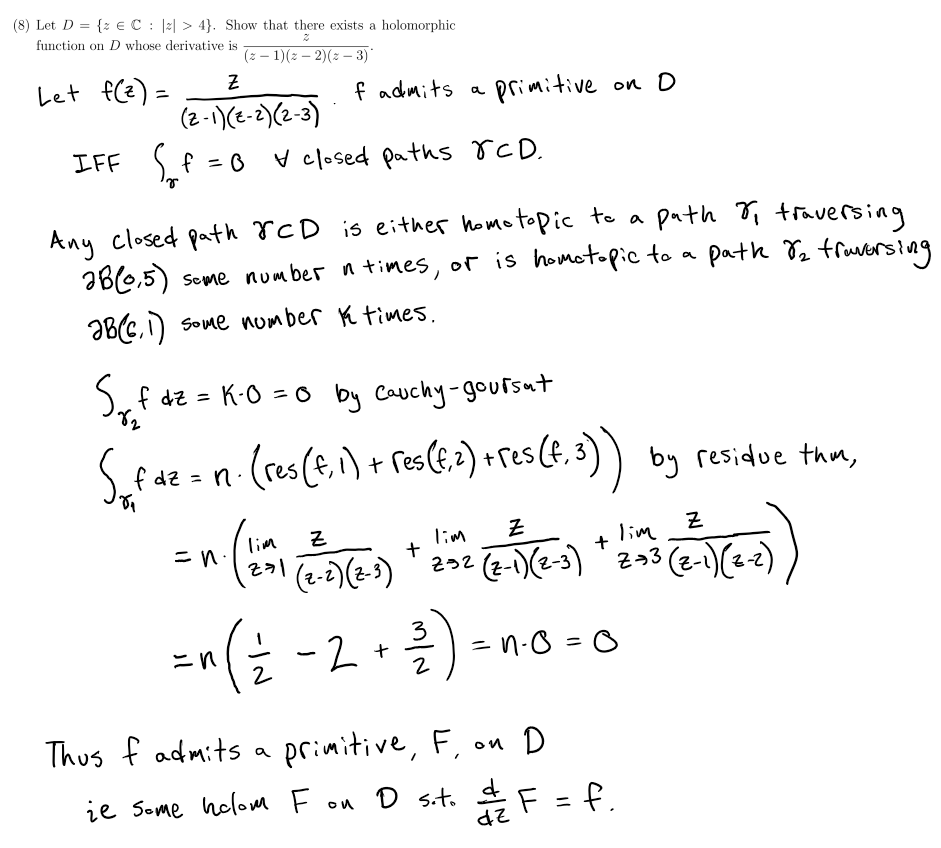 (8) Let D = {z ∈ ℂ : |z| > 4}. Show that there exists a holomorphic
function on D whose derivative is z / (z − 1)(z − 2)(z − 3).
Let f(z) = z / (z-1)(z-2)(z-3) . f admits a primitive on D
IFF ∫_γ f = 0 ∀ closed paths γ⊂D.
Any closed path γ⊂D is either homotopic to a path γ₁ traversing
∂B(0,5) some number n times, or is homotopic to a path γ₂ traversing
∂B(6,1) some number K times.
∫_γ₂ f dz = K·0 = 0 by Cauchy-goursat
∫_γ₁ f dz = n·(res(f,1) + res(f,2) + res(f,3)) by residue thm,
= n·(lim z→1 z / (z-2)(z-3) + lim z→2 z / (z-1)(z-3) + lim z→3 z / (z-1)(z-2))
= n(1/2 - 2 + 3/2) = n·0 = 0
Thus f admits a primitive, F, on D
ie some holom F on D s.t. d/dz F = f.